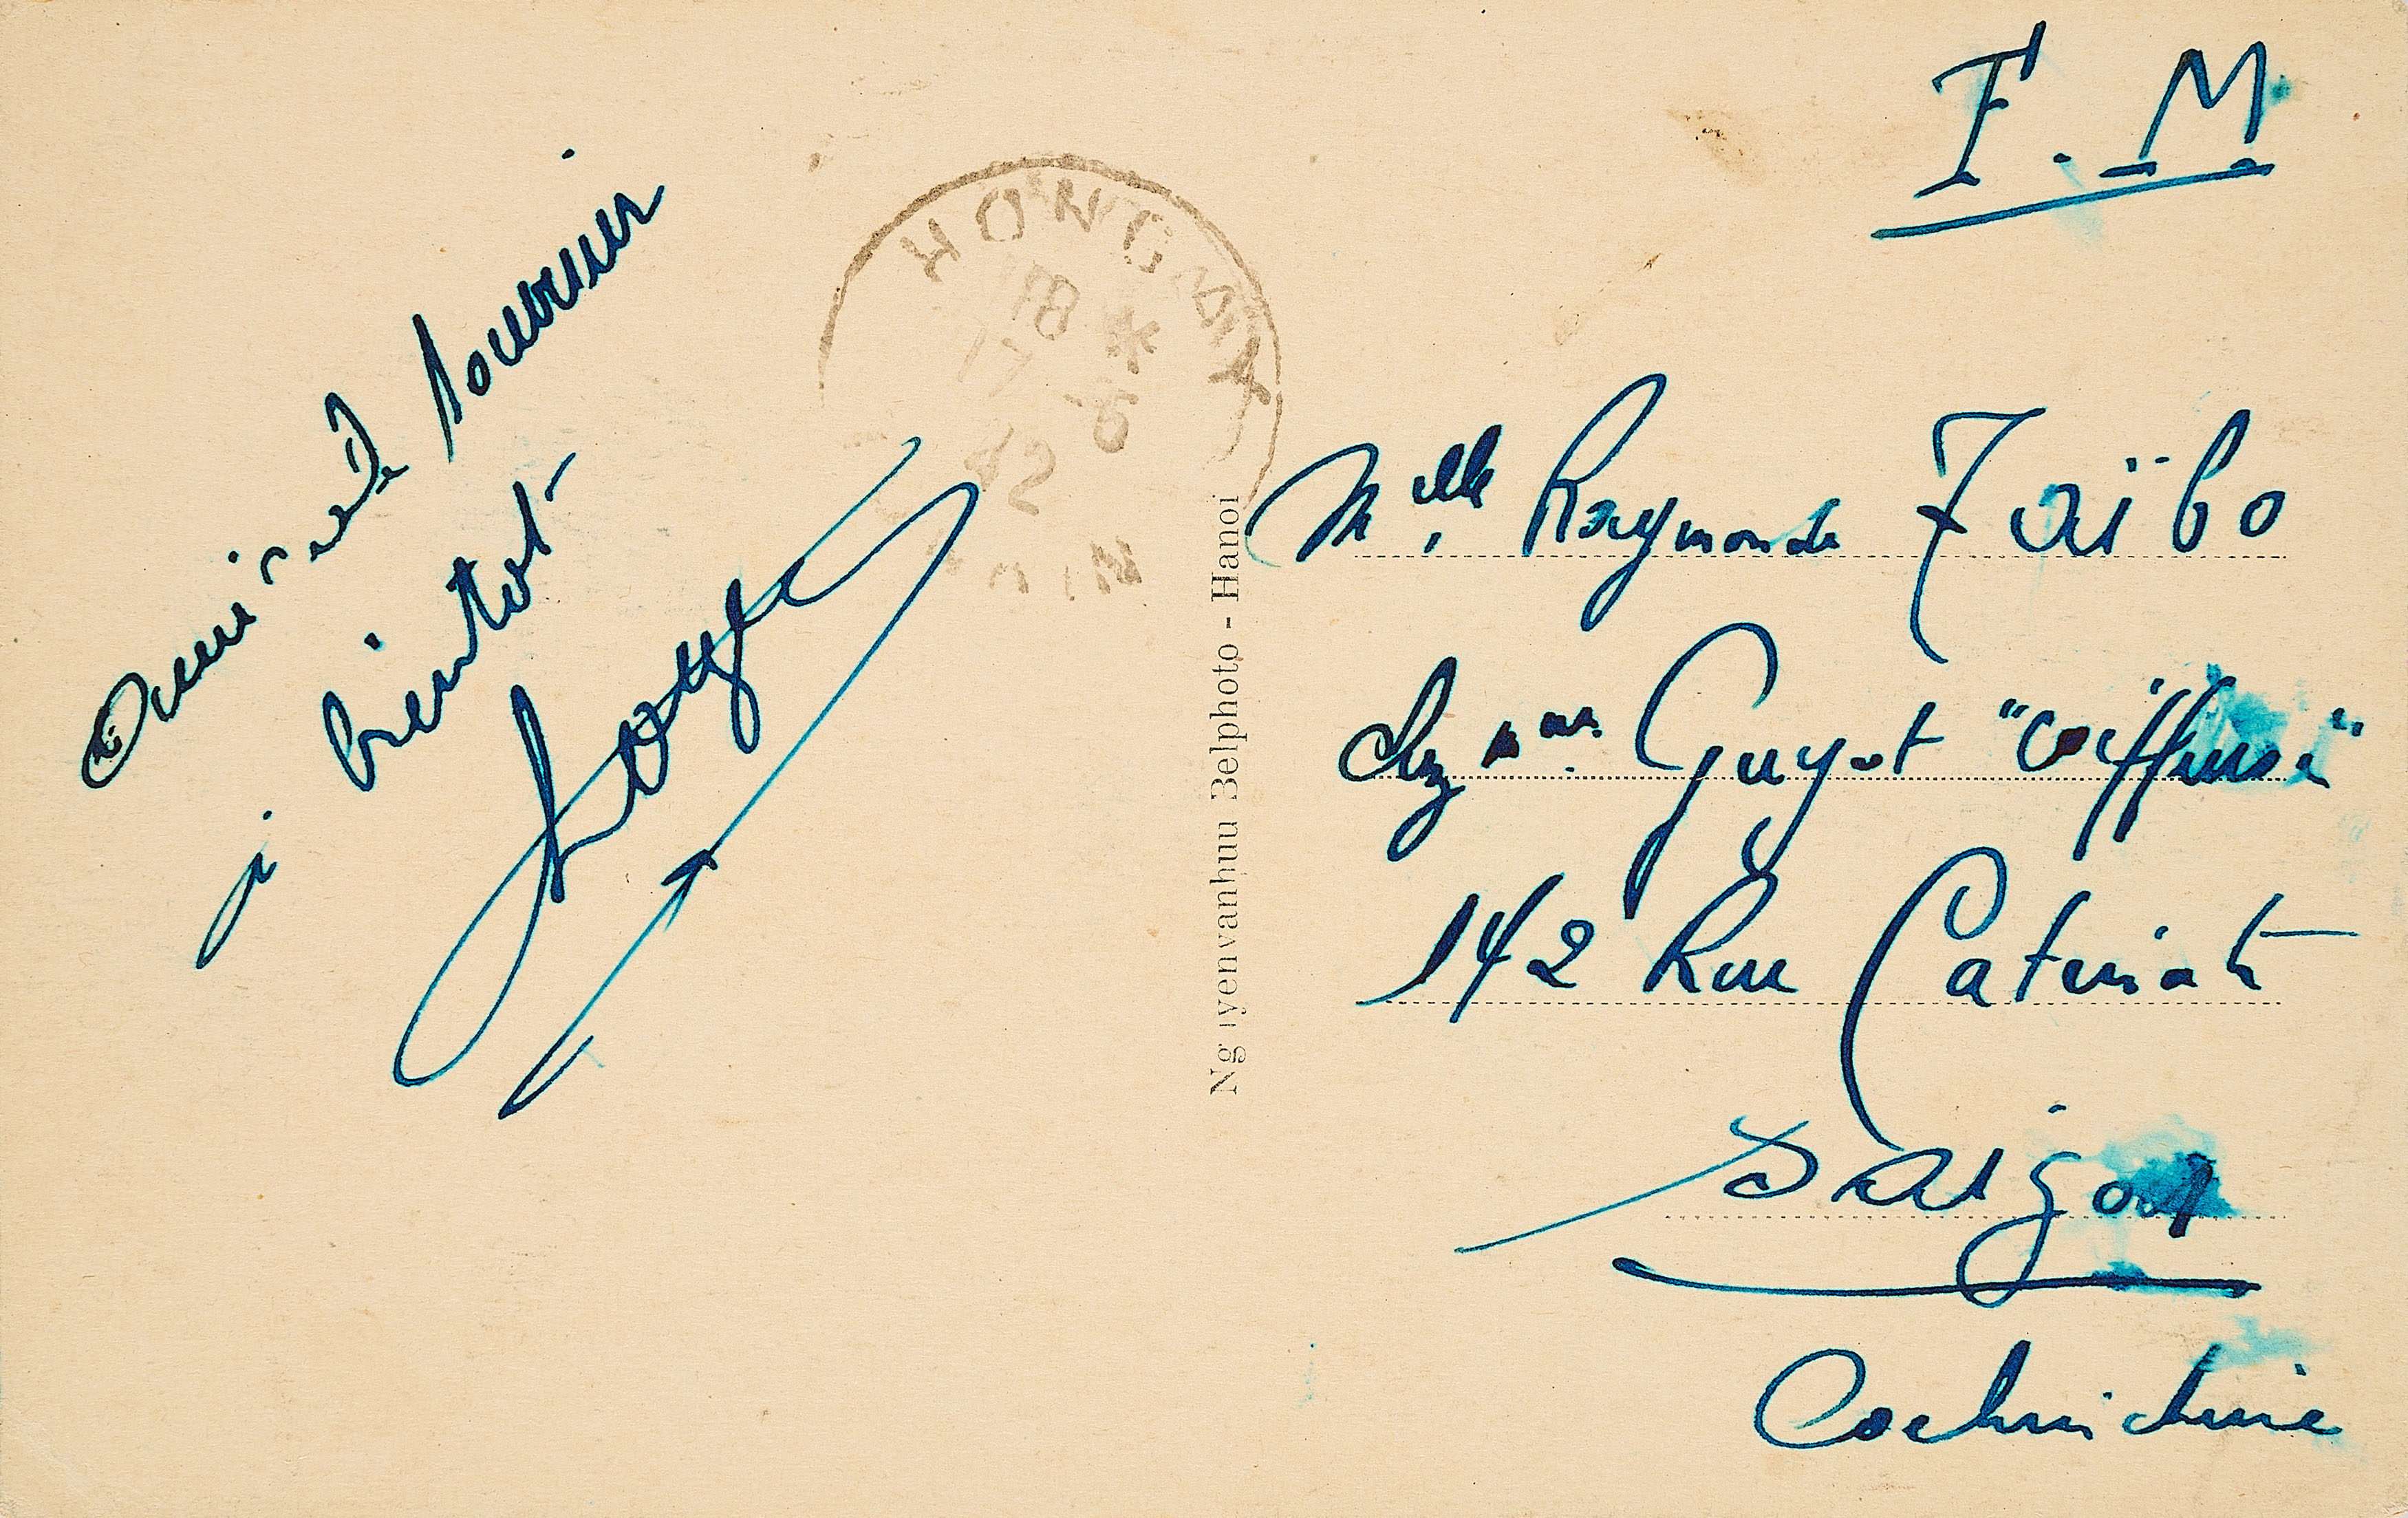 F. M.
Amical souvenir
à bientôt
HONGAY
18 *
17 -5
42
TONKIN
Nguyenvanhuu Belphoto - Hanoi
Melle Raymonde Taïbo
Chez Mme Guyot "Coiffeuse"
142 Rue Catinat
Saigon
Cochinchine